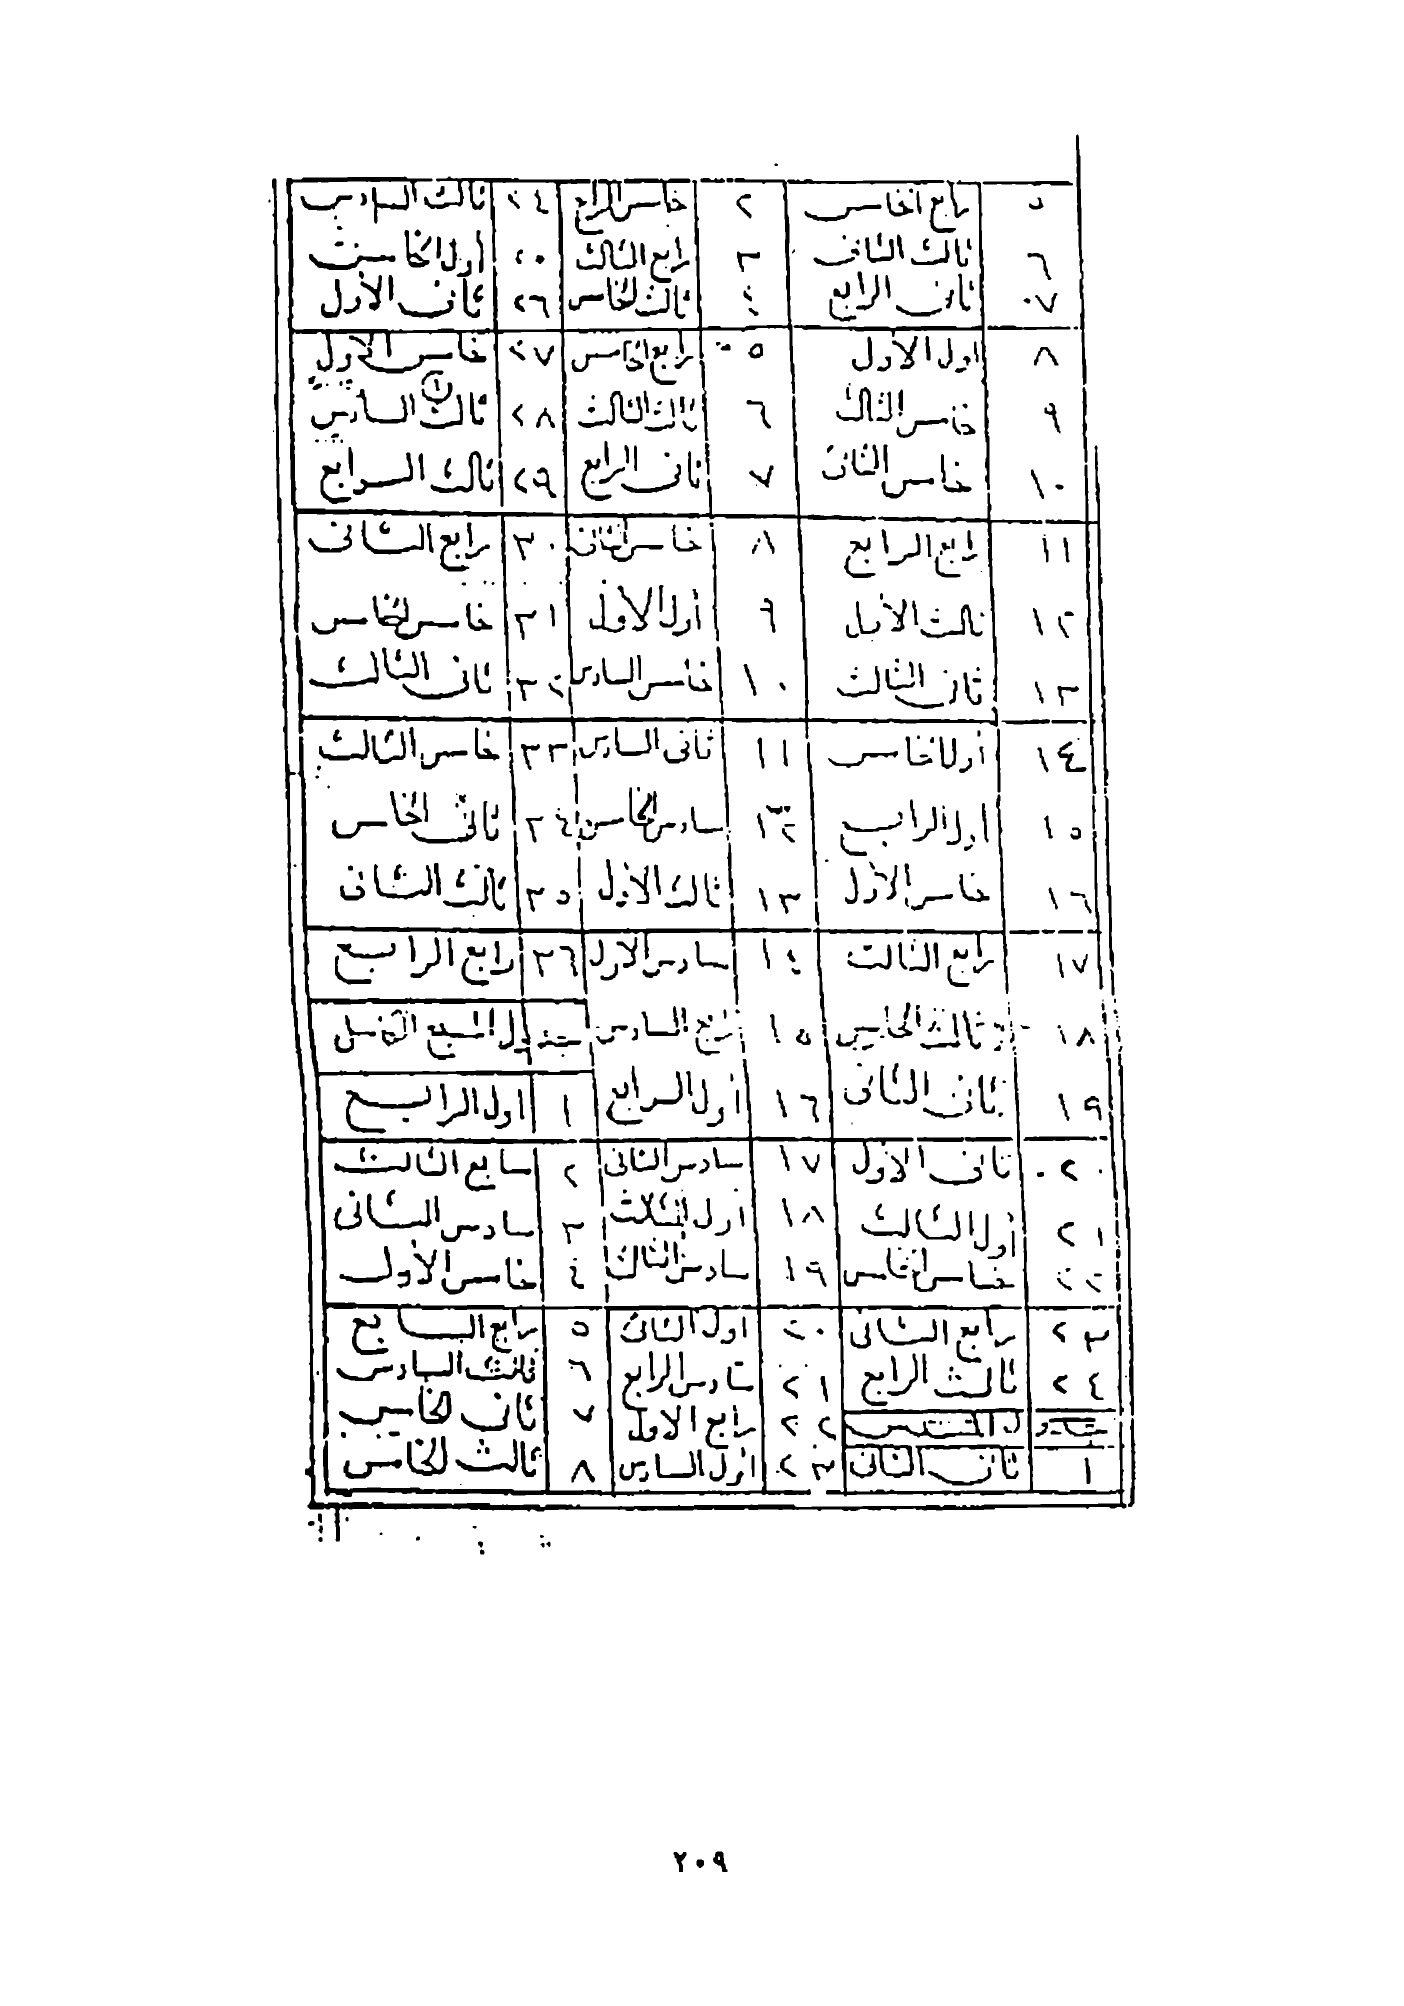 ٥ رابع الخامس ٢ خامس الرابع ٢٤ ثالث السادس
٦ ثالث الثانى ٣ رابع الثالث ٢٥ أول الخامس
٧ ثانى الرابع ٤ ثالث الخامس ٢٦ ثانى الأول
٨ اول الاول ٥ رابع الخامس ٢٧ خامس الاول
٩ خامس الثالث ٦ ثالث الثالث ٢٨ ثالث السادس (١)
١٠ خامس الثانى ٧ ثانى الرابع ٢٩ ثالث السرابع
١١ رابع الرابع ٨ خامس الثانى ٣٠ رابع الثانى
١٢ ثالث الأول ٩ أول الأول ٣١ خامس الخامس
١٣ ثانى الثالث ١٠ خامس السادس ٣٢ ثانى الثالث
١٤ أول الخامس ١١ ثانى السادس ٣٣ خامس الثالث
١٥ أول الرابع ١٢ سادس الخامس ٣٤ ثانى الخامس
١٦ خامس الأول ١٣ ثالث الأول ٣٥ ثالث الثانى
١٧ رابع الثالث ١٤ سادس الاول ٣٦ رابع الرابع
١٨ ثالث الخامس ١٥ رابع السادس
١٩ ثانى الثانى ١٦ أول الرابع ١ اول الرابع
٢٠ ثانى الأول ١٧ سادس الثانى ٢ سابع الثالث
٢١ أول الثالث ١٨ أول الثالث ٣ سادس الثانى
٢٢ خامس الخامس ١٩ سادس الثالث ٤ خامس الأول
٢٣ رابع الثانى ٢٠ اول الثانى ٥ رابع السابع
٢٤ ثالث الرابع ٢١ سادس الرابع ٦ ثالث السادس
٢٢ رابع الاول ٧ ثانى الخامس
١ ثانى الثانى ٢٣ أول السادس ٨ ثالث الخامس
٢٠٩